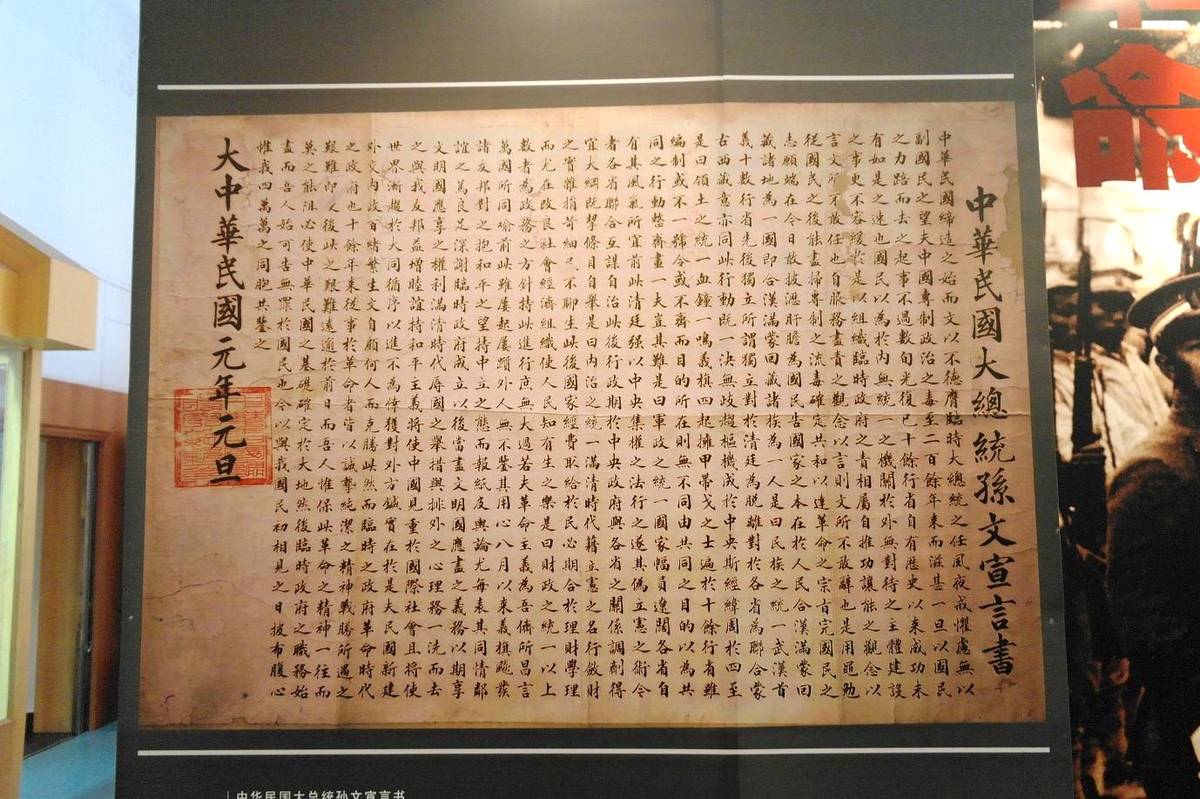 中華民國大總統孫文宣言書
中華民國締造之始而文以不德膺臨時大總統之任夙夜戒懼慮無以
副國民之望夫中國專制政治之毒至二百餘年來而滋甚一旦以國民
之力踣而去之起事不過數旬光復已十餘行省自有歷史以來成功未
有如是之速也國民以為於內無統一之機關於外無對待之主體建設
之事更不容緩於是以組織臨時政府之責相屬自推功讓能之觀念以
言文所不敢任也自服務盡責之觀念以言則文所不敢辭也是用黽勉
從國民之後能盡掃專制之流毒確定共和以達革命之宗旨完國民之
志願端在今日敢披瀝肝膽為國民告國家之本在於人民合漢滿蒙回
藏諸地為一國即合漢滿蒙回藏諸族為一人是曰民族之統一武漢首
義十數行省先後獨立所謂獨立對於清廷為脫離對於各省為聯合蒙
古西藏意亦同此行動既一決無歧趨樞機成於中央斯經緯周於四至
是曰領土之統一血鐘一鳴義旗四起擁甲帶戈之士遍於十餘行省雖
編制或不一號令或不齊而目的所在則無不同由共同之目的以為共
同之行動整齊畫一夫豈其難是曰軍政之統一國家幅員遼闊各省自
有其風氣所宜前此清廷强以中央集權之法行之遂其僞立憲之術今
者各省聯合互謀自治此後行政期於中央政府與各省之關係調劑得
宜大綱既挈條目自舉是曰內治之統一滿清時代藉立憲之名行斂財
之實雜捐苛細民不聊生此後國家經費取給於民必期合於理財學理
而尤在改良社會經濟組織使人民知有生之樂是曰財政之統一以上
數者為政務之方針持此進行庶無大過若夫革命主義為吾儕所昌言
萬國所同喻前此雖屢起屢躓外人無不鑒其用心八月以來義旗飈發
諸友邦對之抱和平之望持中立之態而報紙及輿論尤每表其同情鄰
誼之篤良足深謝臨時政府成立以後當盡文明國應盡之義務以期享
文明國應享之權利滿清時代辱國之舉措與排外之心理務一洗而去
之與我友邦益增睦誼持和平主義將使中國見重於國際社會且將使
世界漸趨於大同循序以進不為倖獲對外方鍼實在於是夫民國新建
外交內政百緒繁生文自顧何人而克勝此然而臨時之政府革命時代
之政府也十餘年來從事於革命者皆以誠摯純潔之精神戰勝所遇之
艱難即使後此之艱難遠逾於前日而吾人惟保此革命之精神一往而
莫之能阻必使中華民國之基礎確定於大地然後臨時政府之職務始
盡而吾人始可告無罪於國民也今以與我國民初相見之日披布腹心
惟我四萬萬之同胞共鑒之
大中華民國元年元旦
中华民国大总统孙文宣言书
命